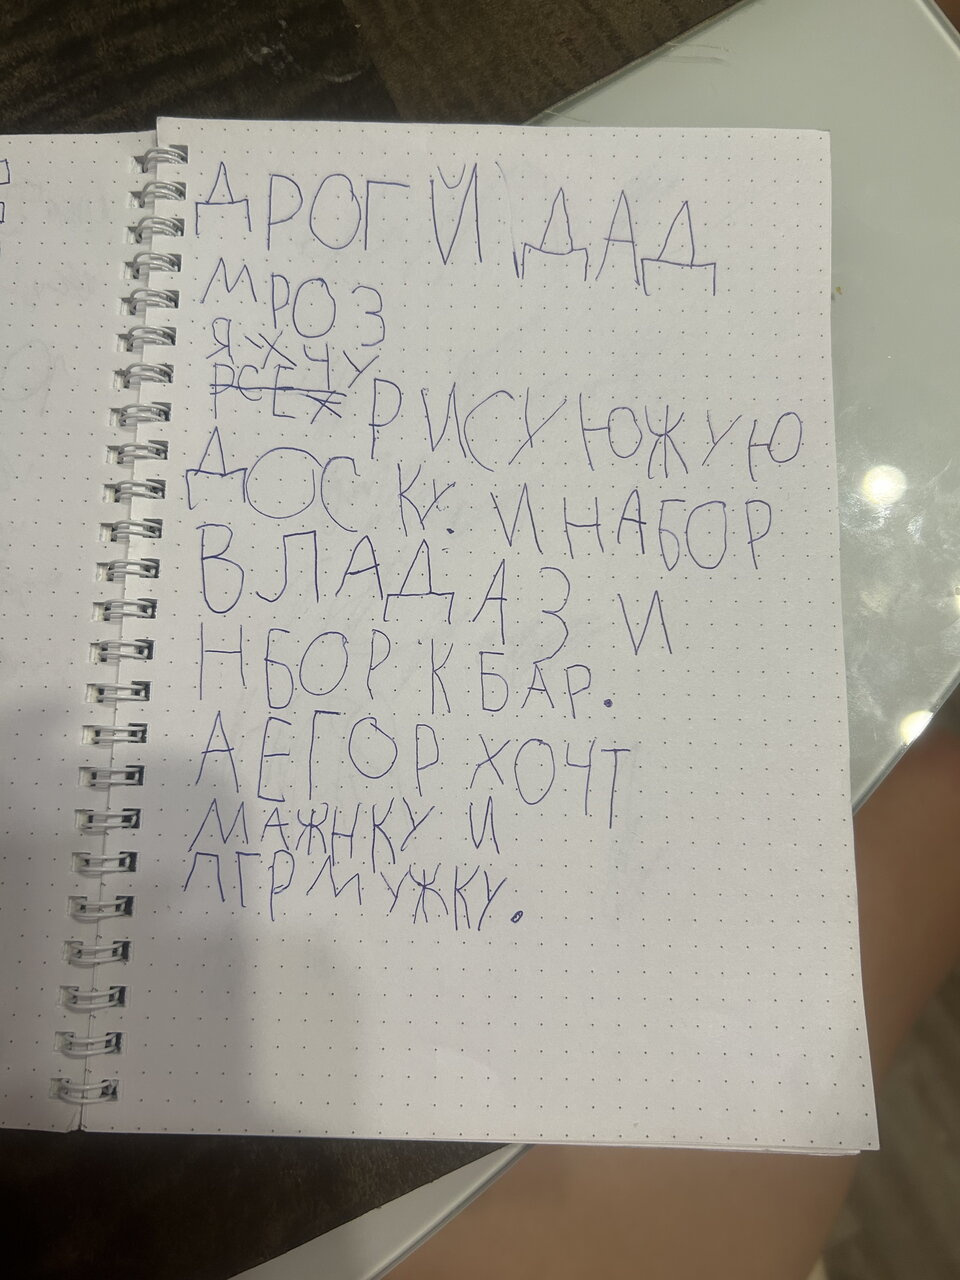 ДРОГЙ ДАД
МРОЗ
Я ХЧУ
РИСУЮЖУЮ
ДОСКУ. И НАБОР
ВЛАДАЗ И
НБОР К БАР.
А ЕГОР ХОЧТ
МАЖНКУ И
ПГРМУЖКУ.